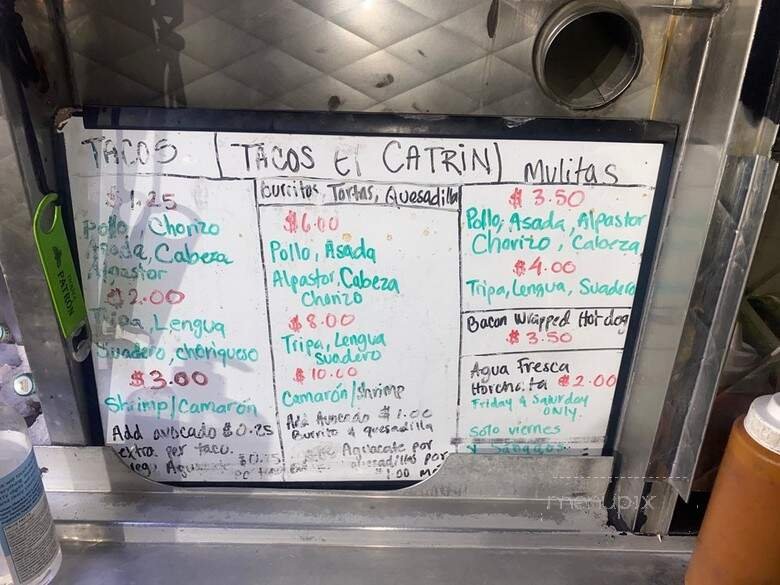 TACOS
TACOS El CATRIN
Mulitas
$1.25
Pollo, Chorizo
Asada, Cabeza
Alpastor
$2.00
Tripa, Lengua
Suadero, choriqueso
$3.00
Shrimp/Camarón
Add avocado $0.25
extra per taco.
Burritos, Tortas, Quesadilla
$6.00
Pollo, Asada
Alpastor, Cabeza
Chorizo
$8.00
Tripa, Lengua
Suadero
$10.00
Camarón/Shrimp
Add Avocado $1.00
Burrito & quesadilla
Aguacate por
quesadillas por
1.00
$3.50
Pollo, Asada, Alpastor
Chorizo, Cabeza
$4.00
Tripa, Lengua, Suadero
Bacon Wrapped Hot dog
$3.50
Agua Fresca
Horchata $2.00
Friday & Saturday
ONLY.
Solo viernes
y Sabados
PATRÓN
menupix